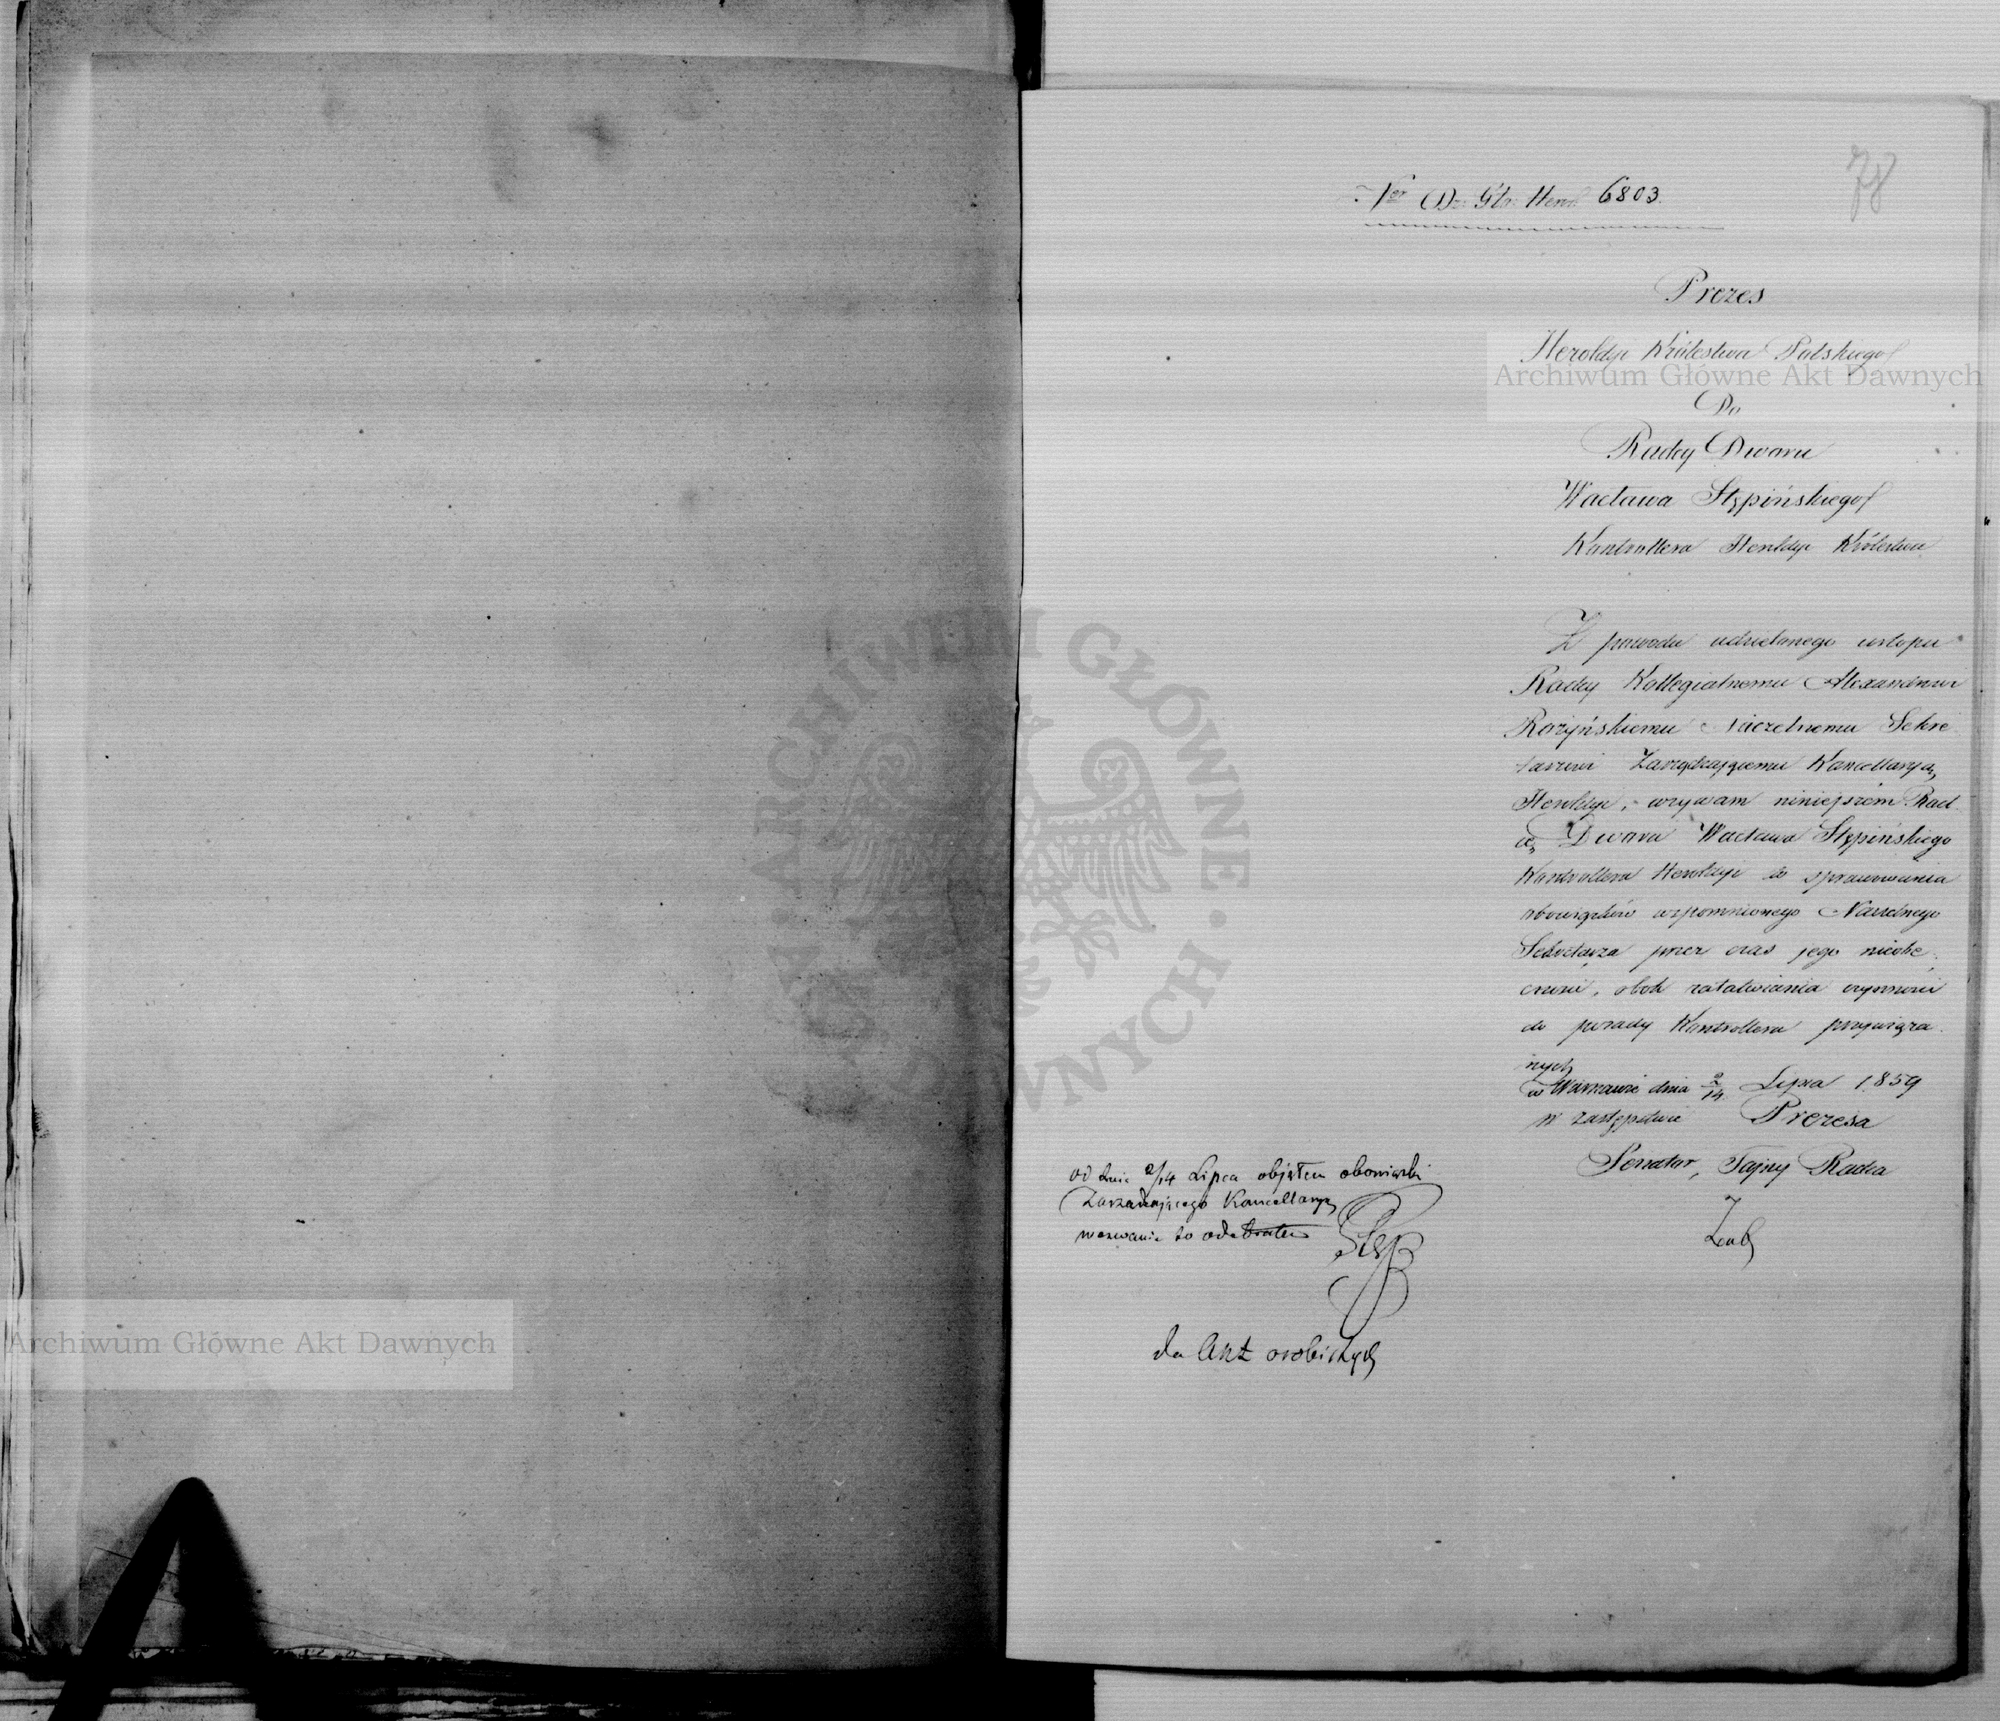 78
Nr Dz: Głó: Herol: 6803.
Prezes
Heroldyi Królestwa Polskiego
Archiwum Główne Akt Dawnych
Do
Radcy Dworu
Wacława Stępińskiego
Kontrollera Heroldyi Królestwa
Z powodu udzielonego urlopu
Radcy Kollegialnemu Alexandrowi
Rożyńskiemu Naczelnemu Sekre
tarzowi Zarządzającemu Kancellaryą
Heroldyi, wzywam niniejszém Rad
cę Dworu Wacława Stępińskiego
Kontrollera Heroldyi do sprawowania
obowiązków wspomnionego Naczelnego
Sekretarza przez czas jego nieobe
cności, obok załatwiania czynności
do posady Kontrollera przywiąza
nych
w Warszawie dnia 2/14 Lipca 1859
w zastępstwie Prezesa
Senator, Tajny Radca
od dnia 2/14 Lipca objąłem obowiązki
Zarządzającego Kancellaryą
wezwanie to odebrałem
Stęp
do Akt osobistych
Archiwum Główne Akt Dawnych
ARCHIWUM GŁÓWNE AKT DAWNYCH